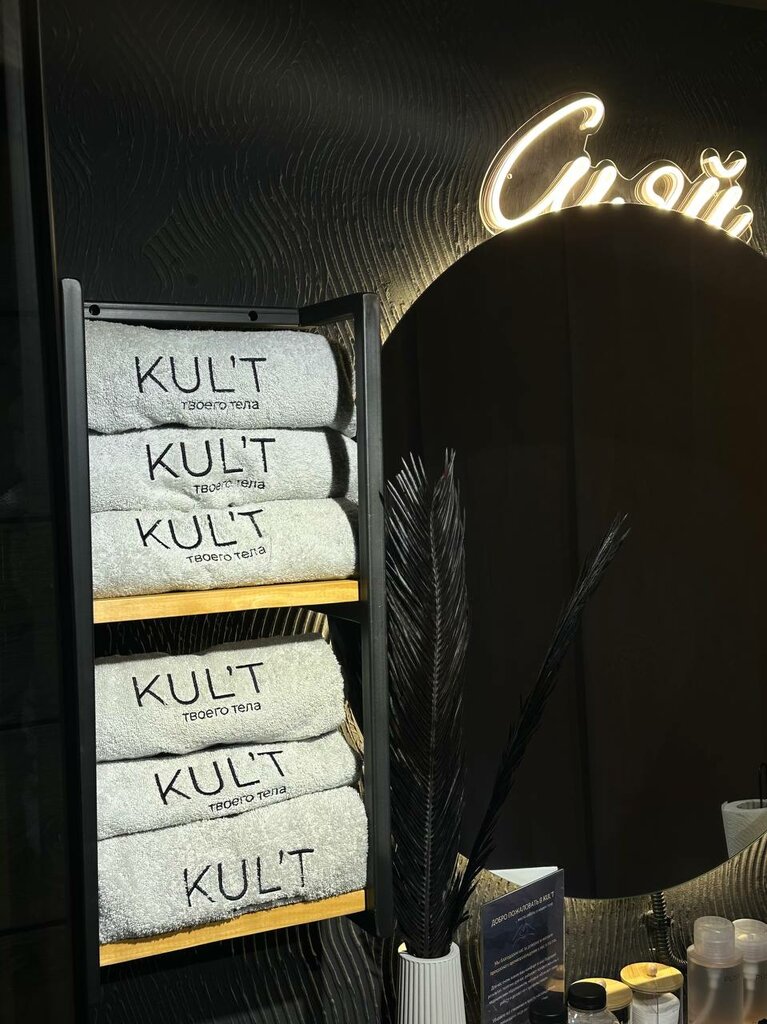 Сияй
KUL'T
твоего тела
KUL'T
твоего тела
KUL'T
твоего тела
KUL'T
твоего тела
KUL'T
твоего тела
KUL'T
ДОБРО ПОЖАЛОВАТЬ В KUL'T